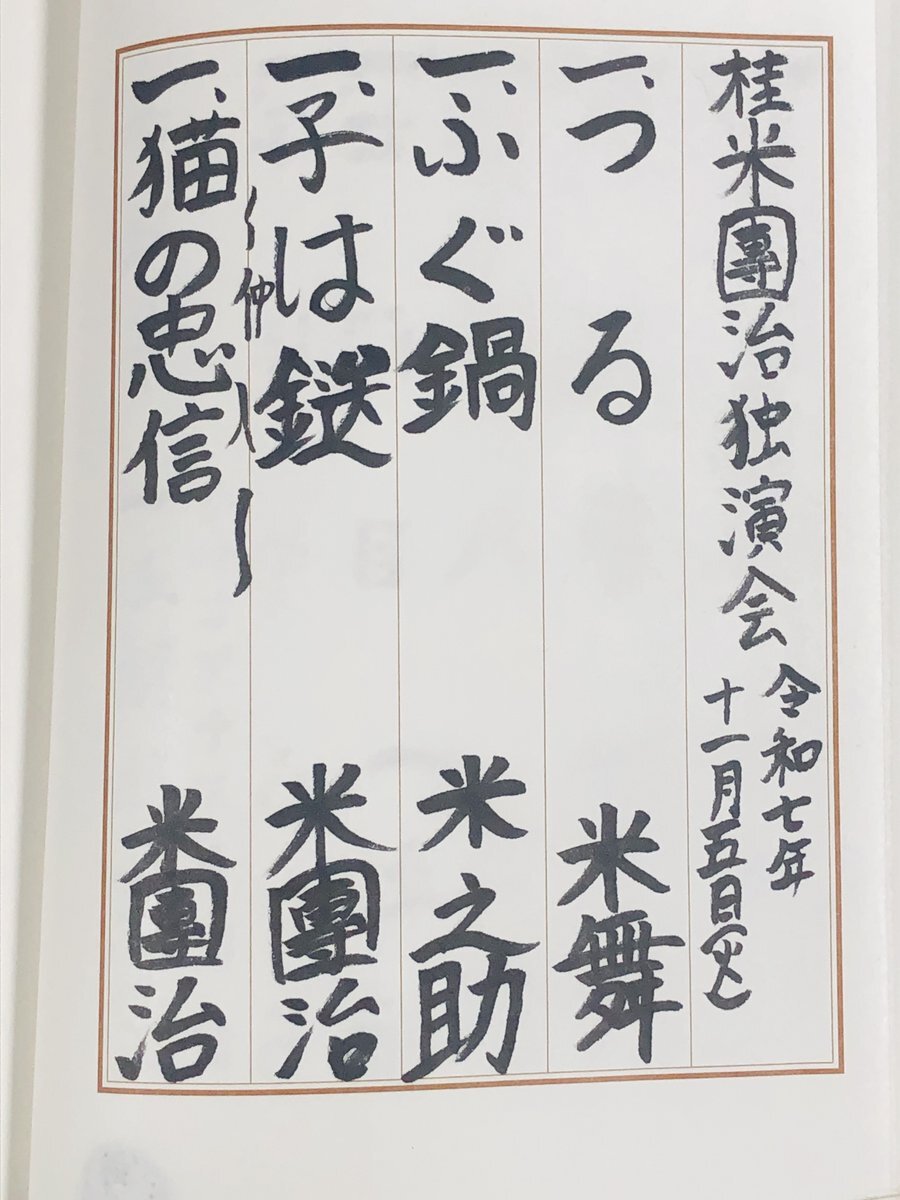 桂米團治独演会
令和七年
十一月五日(火)
一、つる 米舞
一、ふぐ鍋 米之助
一、子は鎹 米團治
〜仲入〜
一、猫の忠信 米團治